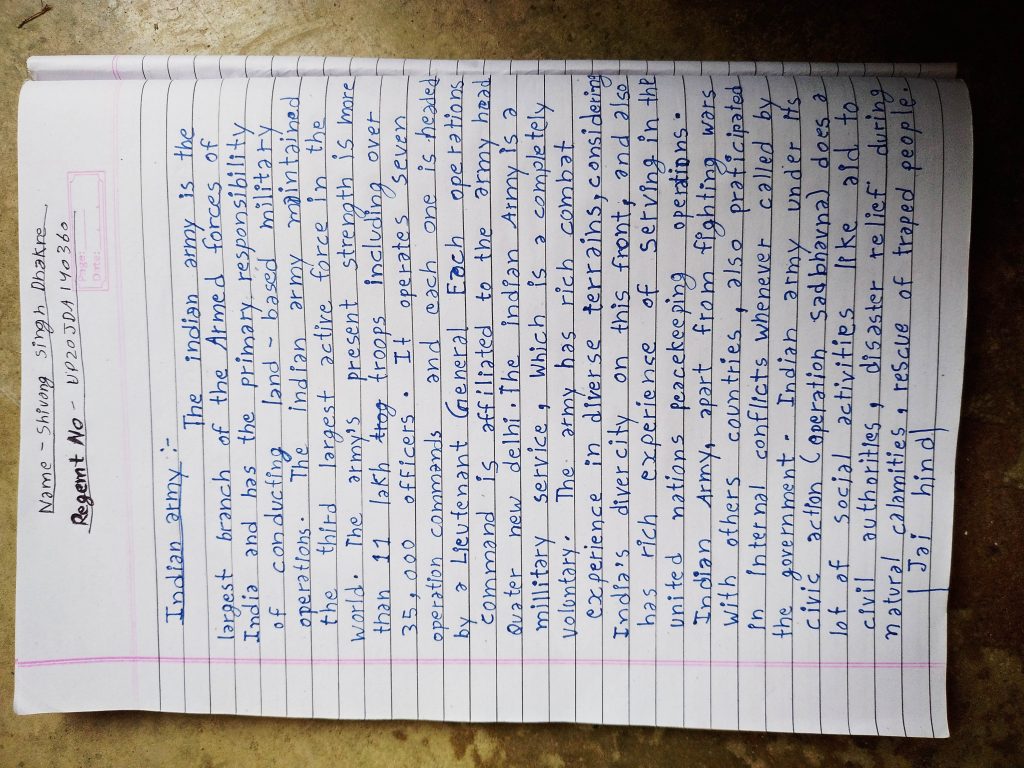 Name - Shivang singh Dhakre
Regemt No - UP20JDA140360
Page:
Date:
Indian army :-
The indian army is the
largest branch of the Armed forces of
India and has the primary responsibility
of conducting land - based military
operations. The Indian army mintained
the third largest active force in the
world. The army's present strength is more
than 11 lakh trog troops including over
35,000 officers. It operates seven
operation commands and each one is headed
by a Lieutenant General Each operations
command is affiliated to the army head
Quater new delhi. The indian Army is a
millitary service, Which is a completely
Voluntary. The army has rich combat
experience in diverse terrains, considering
India's divercity on this front, and also
has rich experiense of Serving in the
united nations peacekeeping operations.
Indian Army, apart from fighting wars
with others countries, also praticipated
in internal conflicts whenever called by
the government. Indian army under its
civic action (operation sadbhavna) does a
lot of social activities like aid to
civil authorities, disaster relief during
natural calamities, rescue of traped people.
| Jai hind |